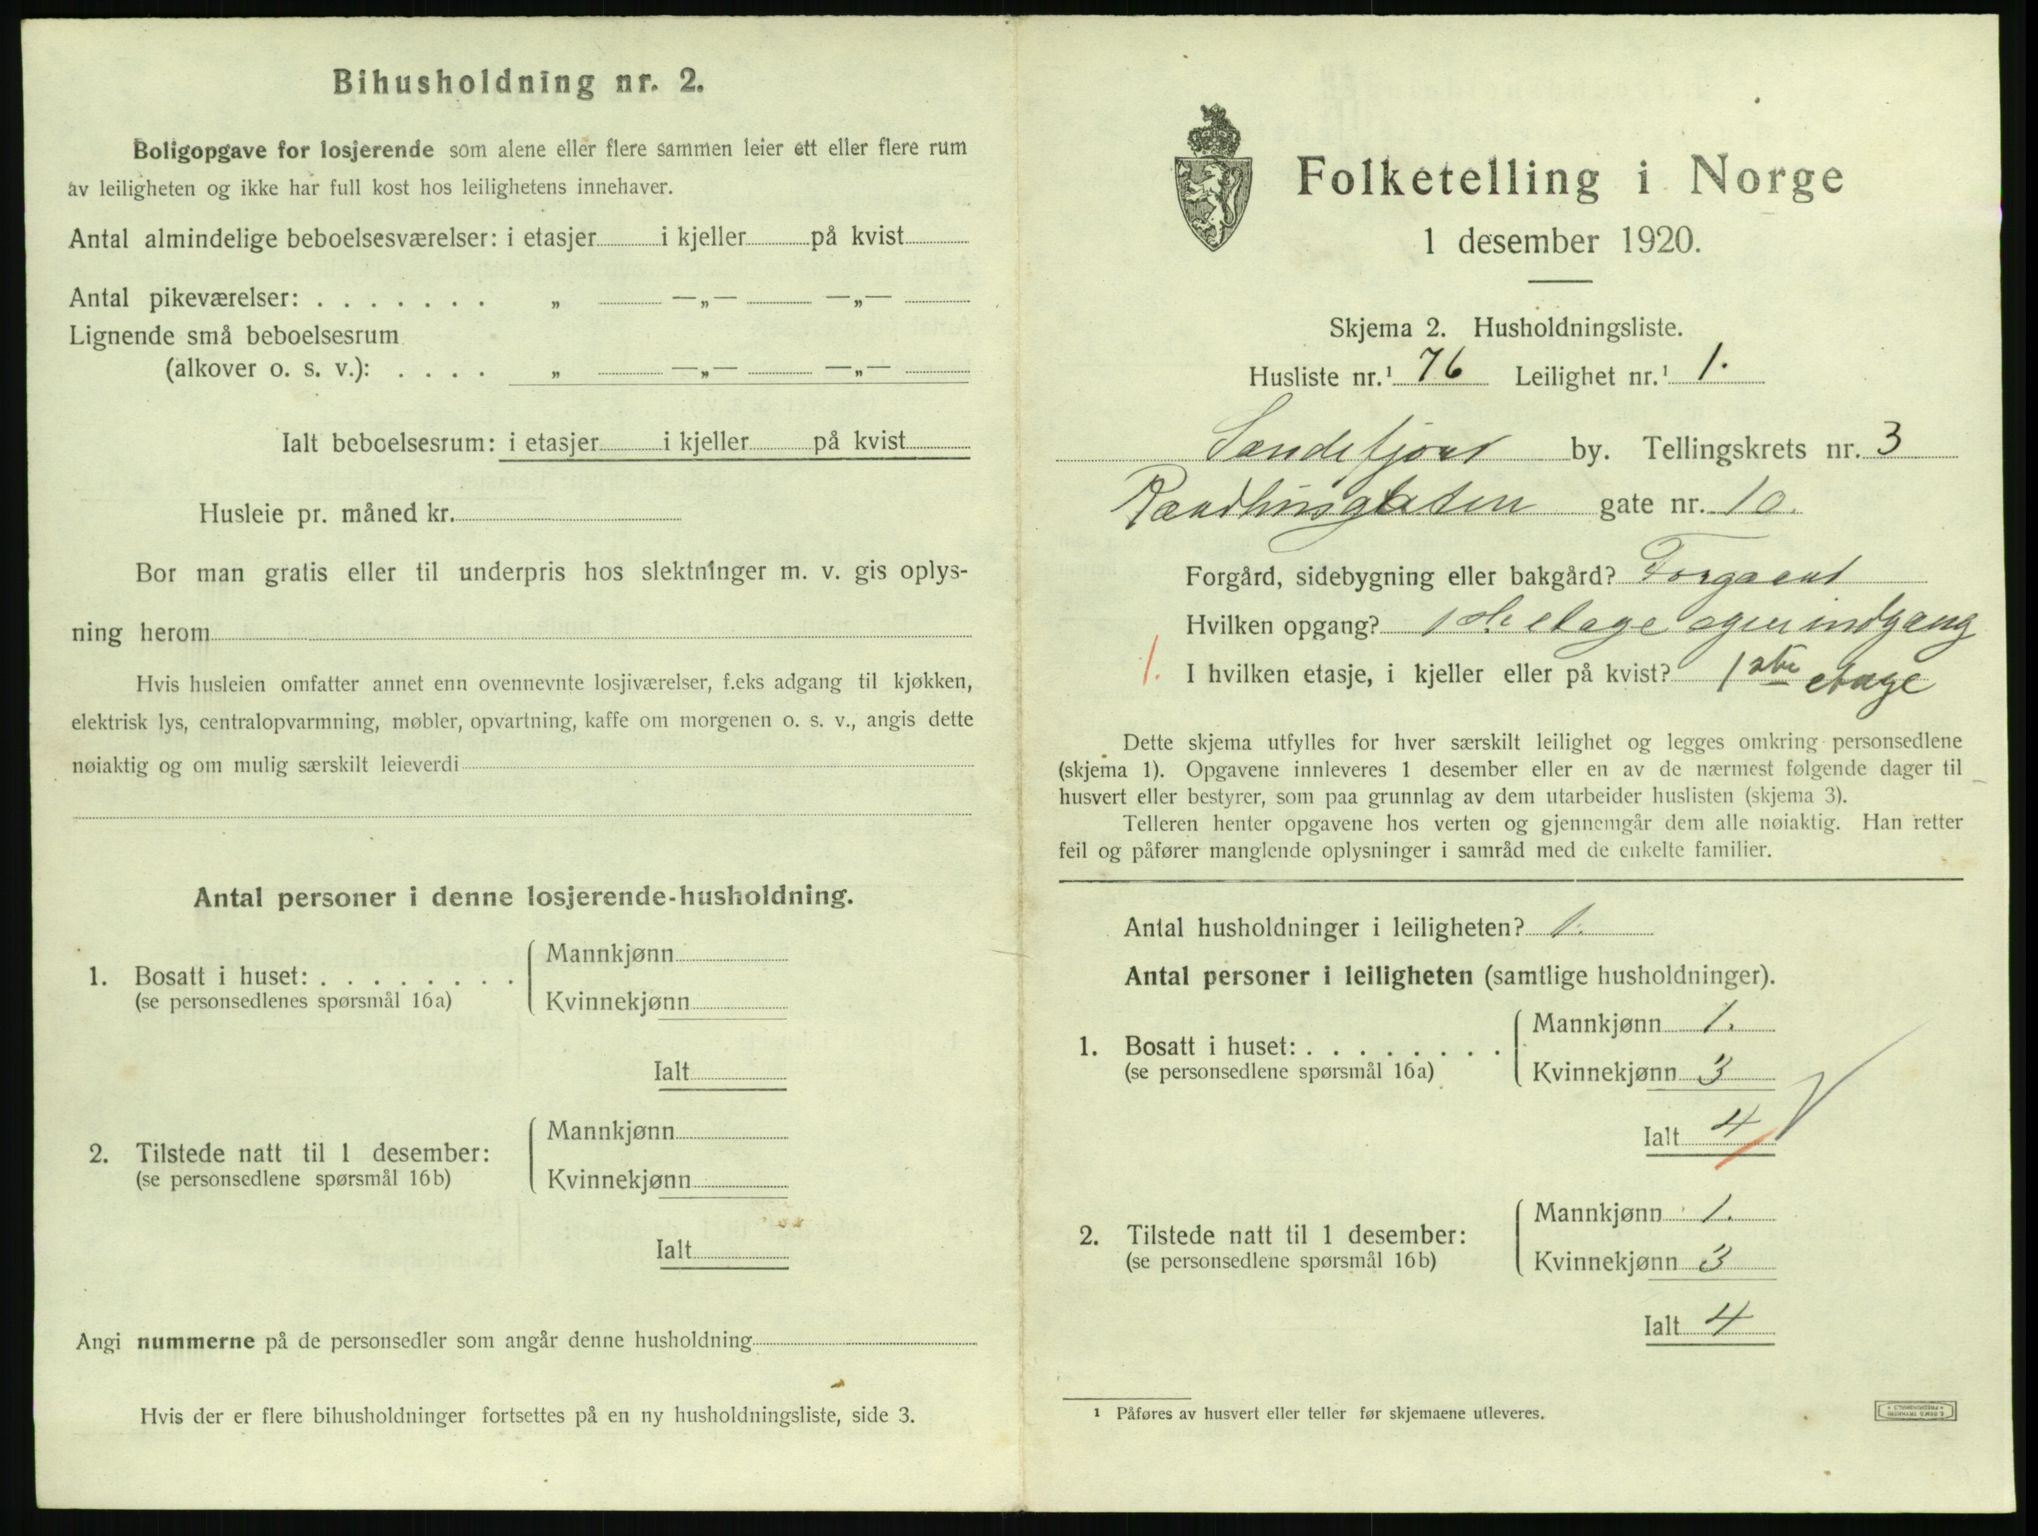 Bihusholdning nr. 2.
Boligopgave for losjerende som alene eller flere sammen leier ett eller flere rum
av leiligheten og ikke har full kost hos leilighetens innehaver.
Antal almindelige beboelsesværelser: i etasjer i kjeller på kvist
Antal pikeværelser: . . . . . . . „ —„— —„—
Lignende små beboelsesrum
(alkover o. s. v.): . . . . „ —„— —„—
Ialt beboelsesrum: i etasjer i kjeller på kvist
Husleie pr. måned kr.
Bor man gratis eller til underpris hos slektninger m. v. gis oplys-
ning herom
Hvis husleien omfatter annet enn ovennevnte losjiværelser, f.eks adgang til kjøkken,
elektrisk lys, centralopvarmning, møbler, opvartning, kaffe om morgenen o. s. v., angis dette
nøiaktig og om mulig særskilt leieverdi
Antal personer i denne losjerende-husholdning.
Mannkjønn
1. Bosatt i huset: . . . . . . . .
(se personsedlenes spørsmål 16a)
Kvinnekjønn
Ialt
Mannkjønn
2. Tilstede natt til 1 desember:
(se personsedlene spørsmål 16b)
Kvinnekjønn
Ialt
Angi nummerne på de personsedler som angår denne husholdning
Hvis der er flere bihusholdninger fortsettes på en ny husholdningsliste, side 3.
Folketelling i Norge
1 desember 1920.
Skjema 2. Husholdningsliste.
Husliste nr.¹ 76 Leilighet nr.¹ 1.
Sandefjord by. Tellingskrets nr. 3
Raadhusgaten gate nr. 10.
Forgård, sidebygning eller bakgård? Forgaard
Hvilken opgang? 1ste etage egen indgang
1. I hvilken etasje, i kjeller eller på kvist? 1ste etage
Dette skjema utfylles for hver særskilt leilighet og legges omkring personsedlene
(skjema 1). Opgavene innleveres 1 desember eller en av de nærmest følgende dager til
husvert eller bestyrer, som paa grunnlag av dem utarbeider huslisten (skjema 3).
Telleren henter opgavene hos verten og gjennemgår dem alle nøiaktig. Han retter
feil og påfører manglende oplysninger i samråd med de enkelte familier.
Antal husholdninger i leiligheten? 1.
Antal personer i leiligheten (samtlige husholdninger).
Mannkjønn 1.
1. Bosatt i huset: . . . . . . . .
(se personsedlene spørsmål 16a)
Kvinnekjønn 3
Ialt 4
Mannkjønn 1.
2. Tilstede natt til 1 desember:
(se personsedlene spørsmål 16b)
Kvinnekjønn 3
Ialt 4
¹ Påføres av husvert eller teller før skjemaene utleveres.